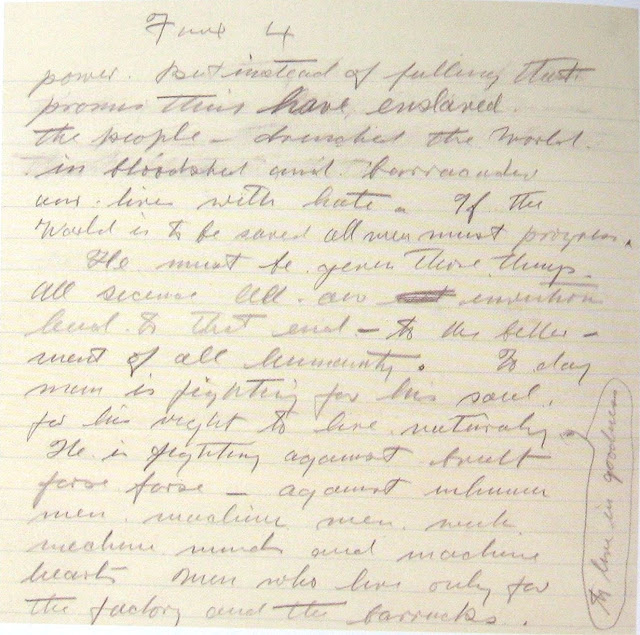 4
power. But instead of fulling that
promis this have enslaved.
the people – drenched the World.
in bloodshed and barracades
our lives with hate. If the
World is to be saved all men must progress.
He must be given those things.
all science all our invention
lend to that end – to the better –
ment of all humanity. To day
man is fighting for his soul.
for his right to live naturaly
to live in goodness
He is fighting against brutt
forse forse – against inhuman
men. machine men. with
mechine minds and machine
hearts men who live only for
the factory and the barracks.